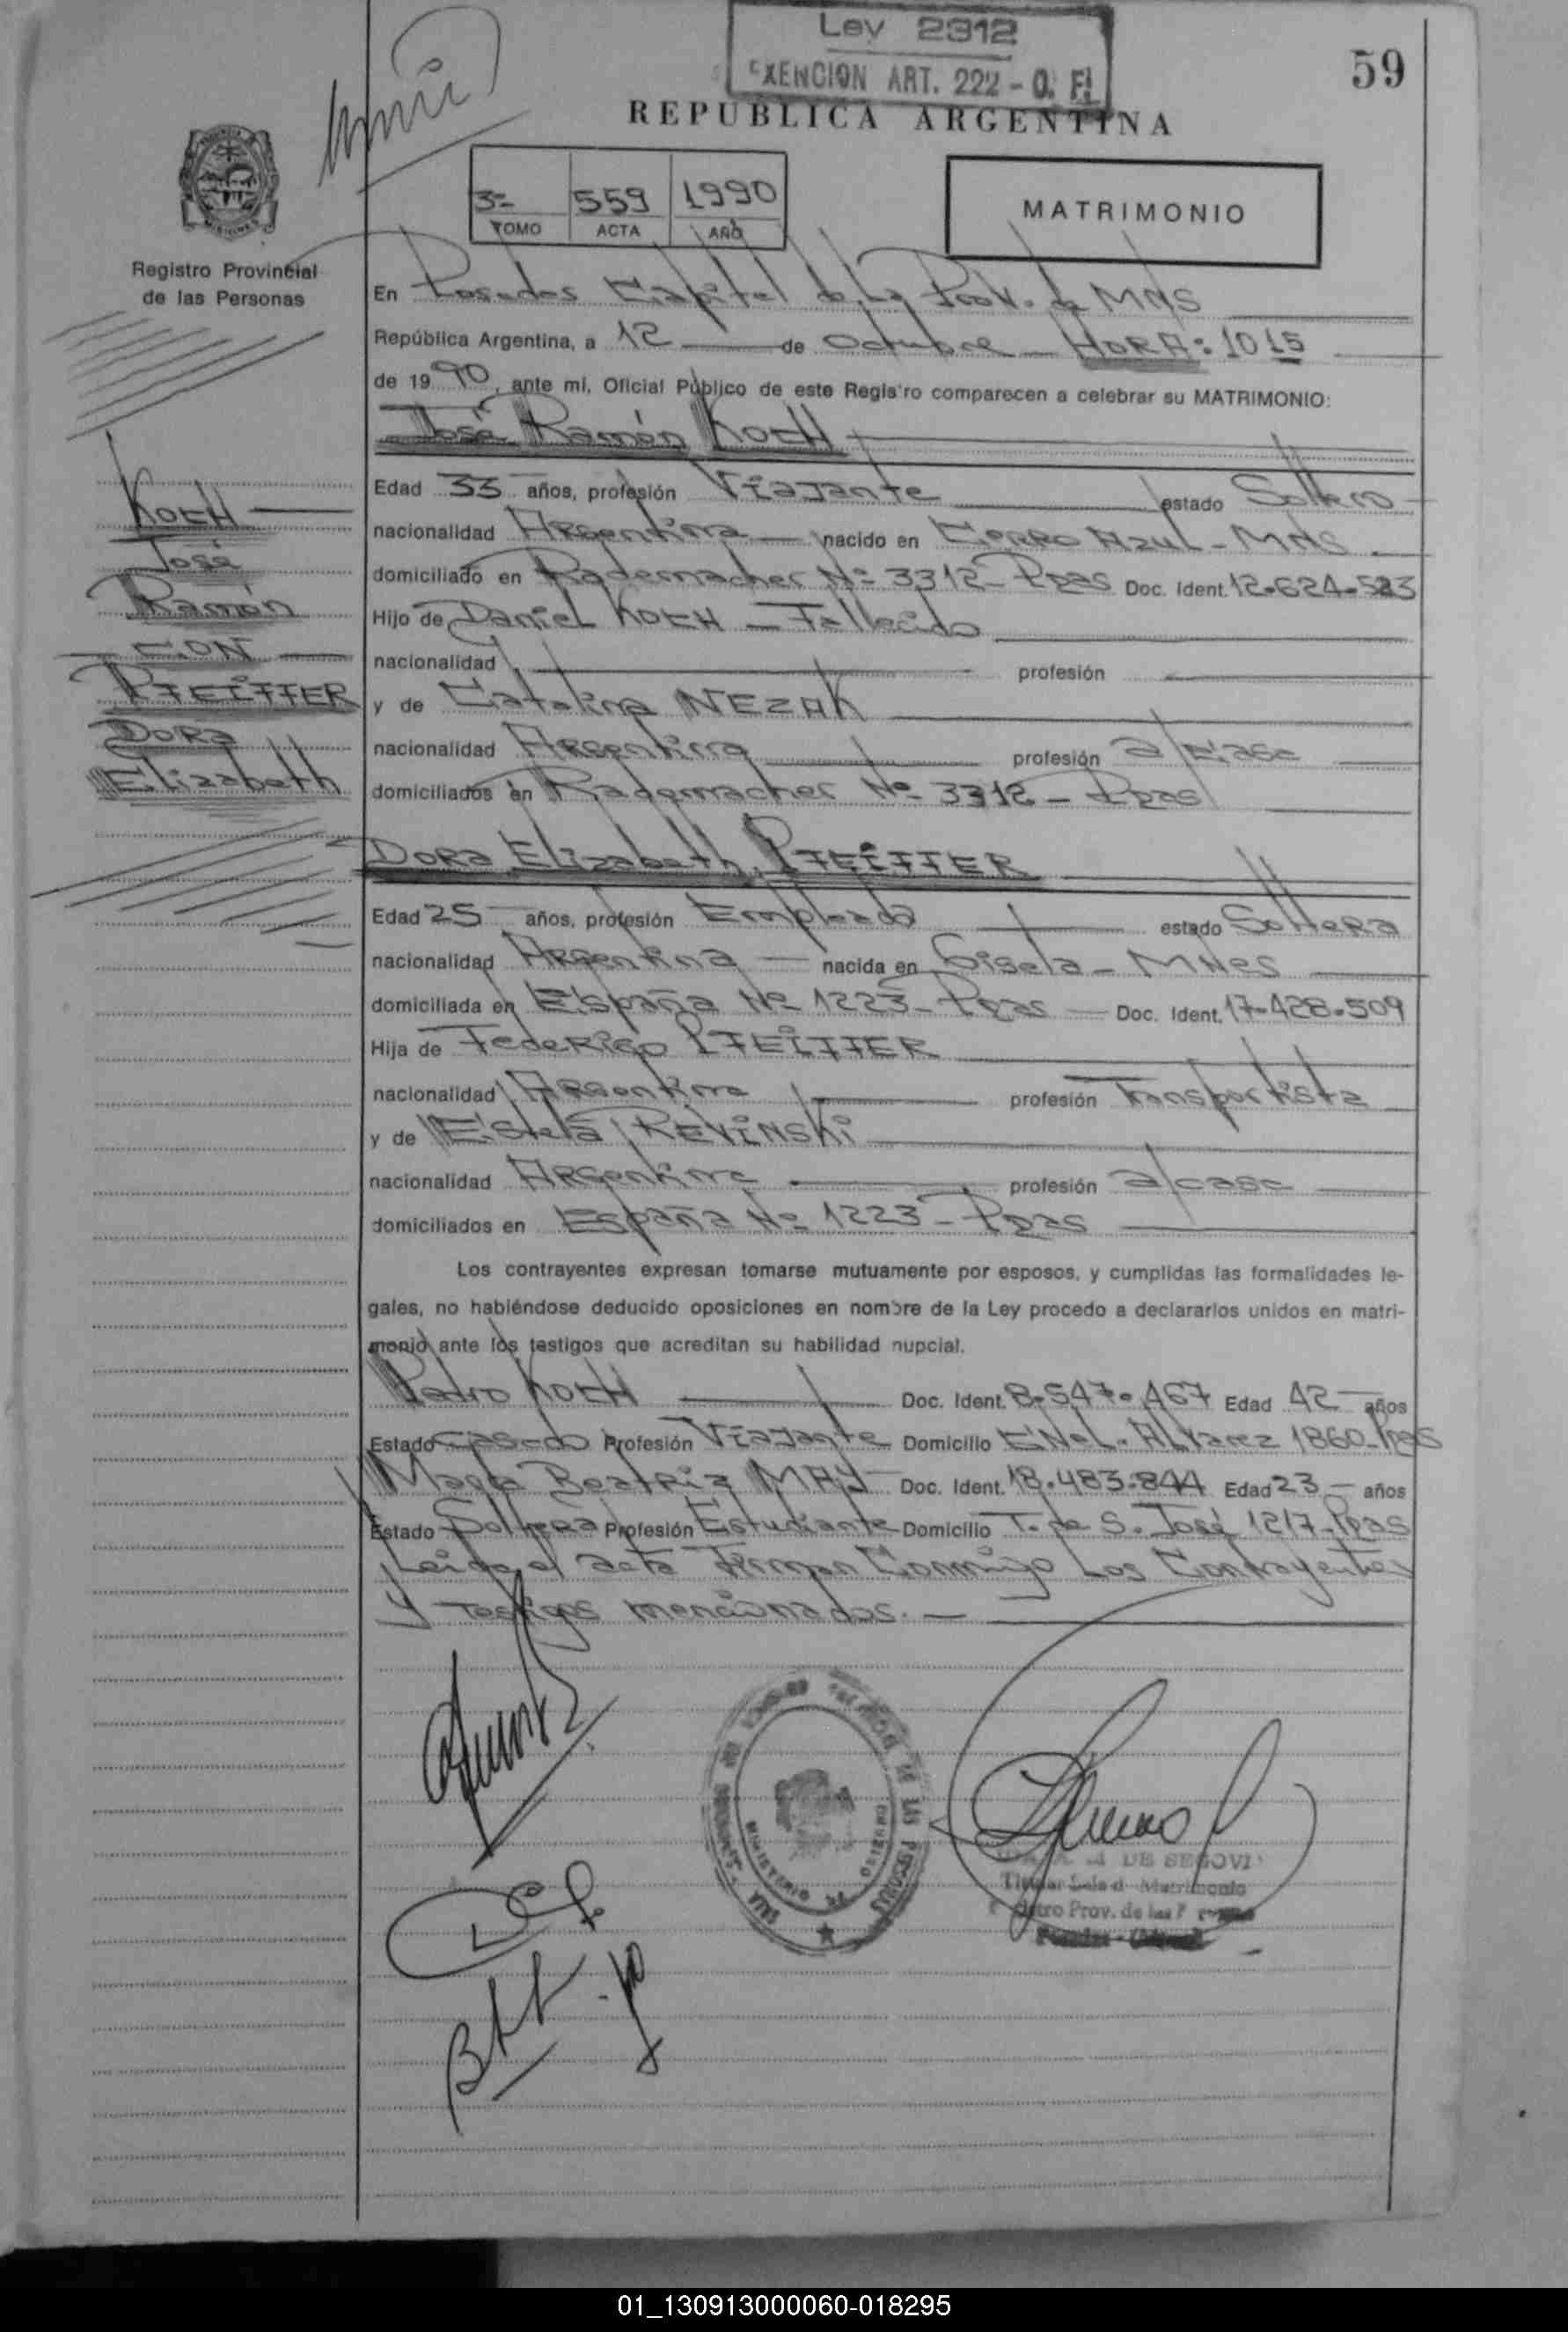 Ley 2312
EXENCION ART. 222 - O. F.
59
REPUBLICA ARGENTINA
3- 559 1990
TOMO ACTA AÑO
MATRIMONIO
Registro Provincial
de las Personas
En Posadas Capital de La Prov. de MNS
República Argentina, a 12 de Octubre HORA: 10 15
de 1990, ante mi, Oficial Público de este Registro comparecen a celebrar su MATRIMONIO:
José Ramón KOCH
Edad 33 años, profesión Viajante estado Soltero
nacionalidad Argentina nacido en Cerro Azul - MNS
domiciliado en Rademacher Nº 3312 - Pdas Doc. Ident. 12.624.523
Hijo de Daniel KOCH - Fallecido
nacionalidad profesión
y de Catalina NEZAK
nacionalidad Argentina profesión a/casa
domiciliados en Rademacher Nº 3312 - Pdas
KOCH
José
Ramón
CON
PFEIFFER
DORA
Elizabeth
DORA Elizabeth PFEIFFER
Edad 25 años, profesión Empleada estado Soltera
nacionalidad Argentina nacida en Gisela - MNES
domiciliada en España Nº 1223 - Pdas Doc. Ident. 17.428.509
Hija de Federico PFEIFFER
nacionalidad Argentina profesión Transportista
y de Estela REVINSKI
nacionalidad Argentina profesión a/casa
domiciliados en España Nº 1223 - Pdas
Los contrayentes expresan tomarse mutuamente por esposos, y cumplidas las formalidades le-
gales, no habiéndose deducido oposiciones en nombre de la Ley procedo a declararlos unidos en matri-
monio ante los testigos que acreditan su habilidad nupcial.
Pedro KOCH Doc. Ident. 8.547.467 Edad 42 años
Estado Casado Profesión Viajante Domicilio CNeL. ALVarez 1860 - Pdas
María Beatriz MAY Doc. Ident. 18.483.844 Edad 23 años
Estado Soltera Profesión Estudiante Domicilio T. de S. José 1217 - Pdas
Leida el acta Firman Conmigo Los Contrayentes
y testigos mencionados.
DE SEGOVI
Titular Sala d Matrimonio
tro Prov. de las P
01_130913000060-018295